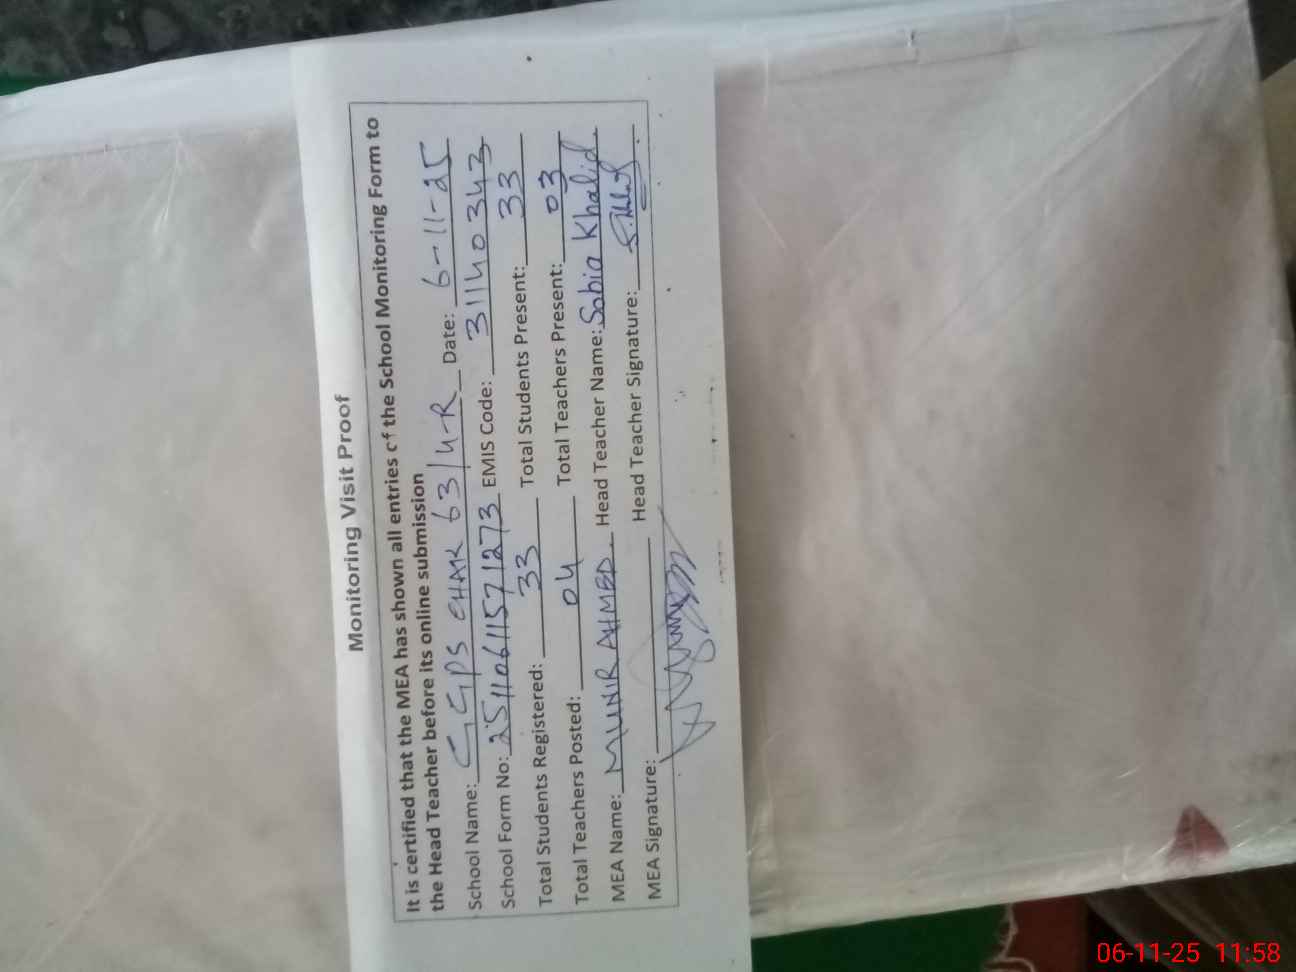 Monitoring Visit Proof
It is certified that the MEA has shown all entries of the School Monitoring Form to
the Head Teacher before its online submission
School Name: GGPS CHAK 63/4-R Date: 6-11-25
School Form No: 25110611571273 EMIS Code: 31140343
Total Students Registered: 33 Total Students Present: 33
Total Teachers Posted: 04 Total Teachers Present: 03
MEA Name: MUNIR AHMED. Head Teacher Name: Sobia Khalid.
MEA Signature: Head Teacher Signature:
06-11-25 11:58